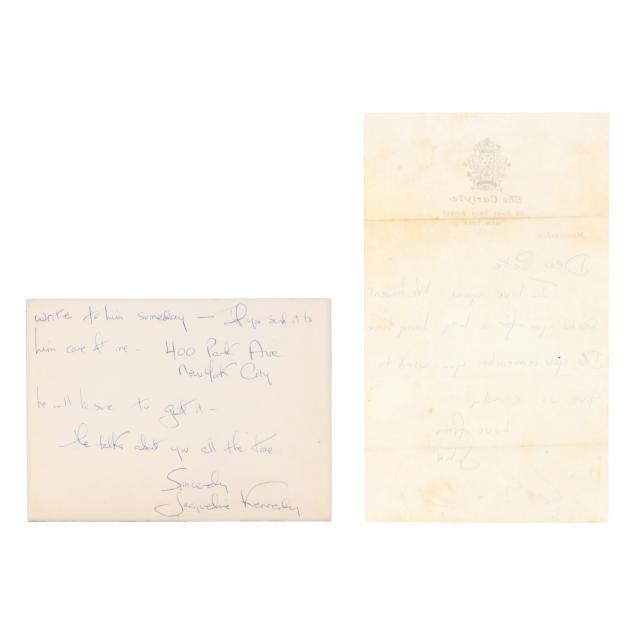 write to him someday — If you send it to
him care of me - 400 Park Ave
New York City
he will be sure to get it -
He talks about you all the time
Sincerely
Jacqueline Kennedy
The Carlyle
New York
Memorandum
Dear
I love you. We haven't
seen you for a long time
Do you remember you used to
give us candy
Love from
John